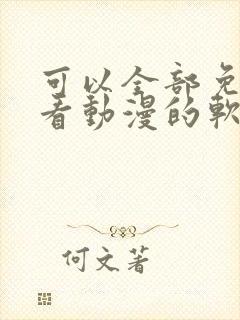 可以全部免
看動漫的軟
何文著